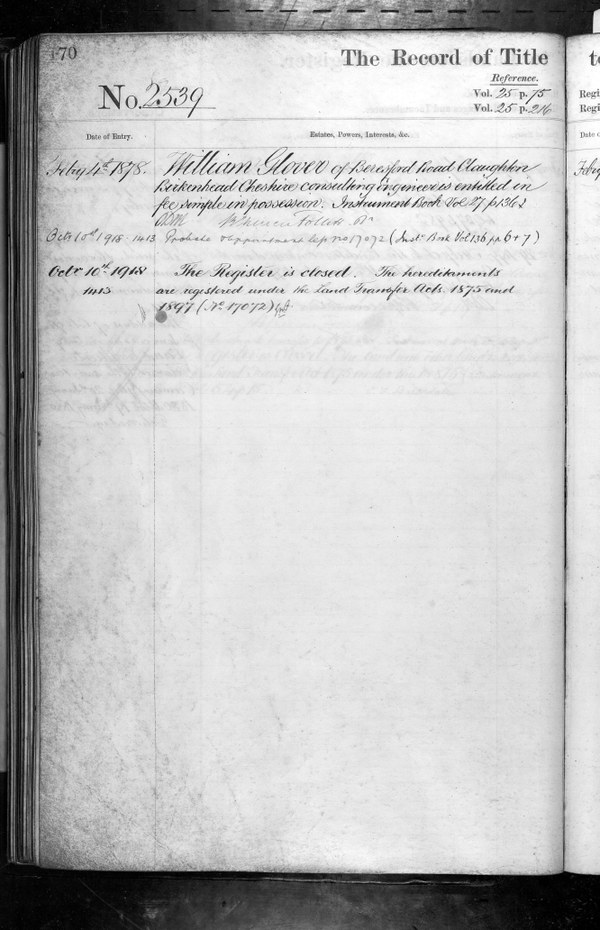 170
The Record of Title
Reference.
No. 2539
Vol. 25 p. 75
Vol. 25 p. 216
Date of Entry.
Estates, Powers, Interests, &c.
Feby 4th 1878.
William Glover of Beresford Road Claughton
Birkenhead Cheshire consulting Engineer is entitled in
fee simple in possession. Instrument Book Vol 27 p 1362
Octr 10th 1918 - 1413 Probate appointment Dep. no 17072 (Instt Book Vol 136 pp 6 + 7)
Octr 10th 1918
The Register is closed. The hereditaments
1413
are registered under the Land Transfer Acts. 1875 and
1897 (No 17072)
to
Regi
Regi
Date o
Feby